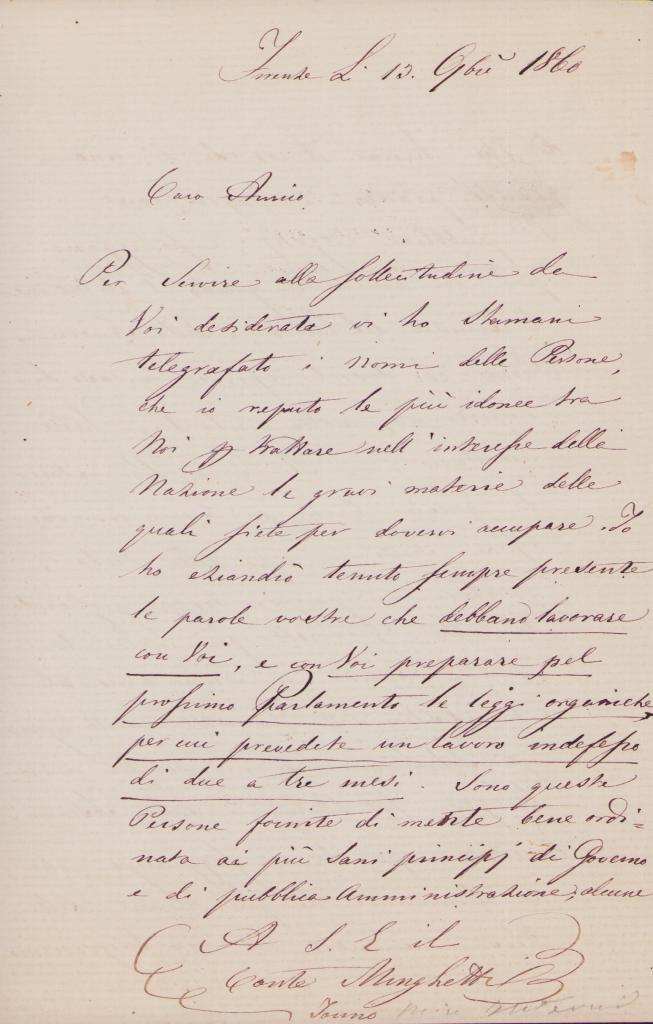 Firenze Li 13. 9bre 1860
Caro Amico
Per servire alla sollecitudine da
Voi desiderata vi ho stamani
telegrafato i nomi delle Persone,
che io reputo le più idonee tra
Noi p trattare nell'interesse della
Nazione le gravi materie delle
quali siete per dovervi occupare. Io
ho eziandiò tenuto sempre presente
le parole vostre che debband lavorare
con Voi, e con Voi preparare pel
prossimo Parlamento le leggi organiche,
per cui prevedete un lavoro indefesso
di due a tre mesi. Sono queste
Persone fornite di mente bene ordi=
nata ai più sani principj di Governo
e di pubblica Amministrazione, alcune
A S. E il
Conte Minghetti